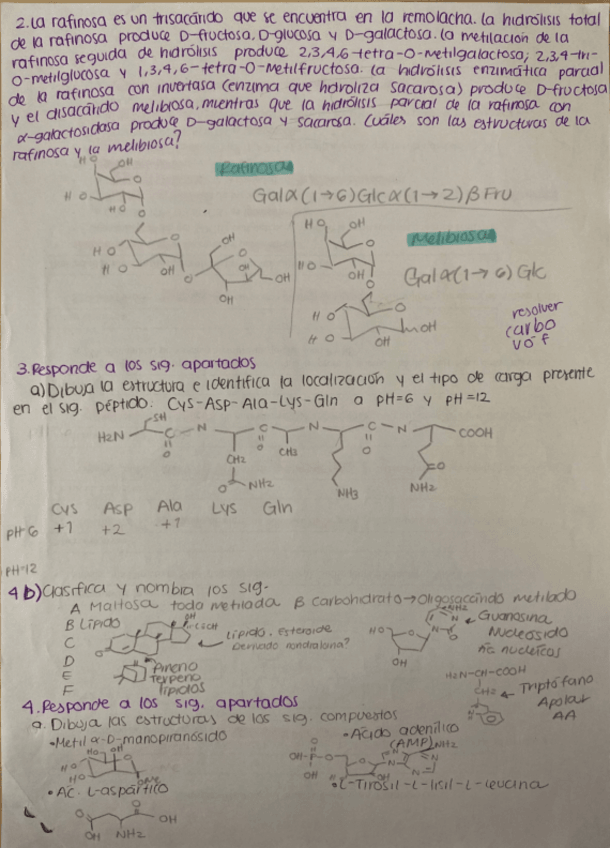 2. La rafinosa es un trisacárido que se encuentra en la remolacha. La hidrólisis total
de la rafinosa produce D-fructosa, D-glucosa y D-galactosa. La metilación de la
rafinosa seguida de hidrólisis produce 2,3,4,6-tetra-O-metilgalactosa; 2,3,4-tri-
O-metilglucosa y 1,3,4,6-tetra-O-metilfructosa. La hidrólisis enzimática parcial
de la rafinosa con invertasa (enzima que hidroliza sacarosa) produce D-fructosa
y el disacárido melibiosa, mientras que la hidrólisis parcial de la rafinosa con
α-galactosidasa produce D-galactosa y sacarosa. Cuáles son las estructuras de la
rafinosa y la melibiosa?
Rafinosa
Galα(1→6)Glcα(1→2)βFru
HO OH
O
HO
HO
O
HO
HO
OH
O
OH
OH
OH
HO OH
Melibiosa
HO
OH
O
Galα(1→6)Glc
HO
HO
OH
OH
resolver
carbo
vo f
3. Responde a los sig. apartados
a) Dibuja la estructura e identifica la localización y el tipo de carga presente
en el sig. péptido. Cys-Asp-Ala-Lys-Gln a pH=6 y pH=12
SH
H2N C N C N C N COOH
O CH2 O CH3 O
O NH2 NH3 NH2 O
Cys Asp Ala Lys Gln
pH=6 +1 +2 +1
pH=12
4 b) Clasifica y nombra los sig.
A Maltosa toda metilada β carbohidrato→Oligosacárido metilado
B Lípido
C
D
E
F
OH
Lípido. Esteroide
Pineno
Terpeno
lípidos
HO OH
NH2
Guanosina
Nucleósido
Ác nucleicos
H2N-CH-COOH
CH2
Triptófano
Apolar
AA
4. Responde a los sig. apartados
a. Dibuja las estructuras de los sig. compuestos
•Metil α-D-manopiranósido
HO OH
HO
HO
OMe
•Ácido adenílico
(AMP) NH2
OH-P-O
OH OH
•Ac. L-aspártico
O O
OH NH2 OH
•L-Tirosil-L-lisil-L-leucina